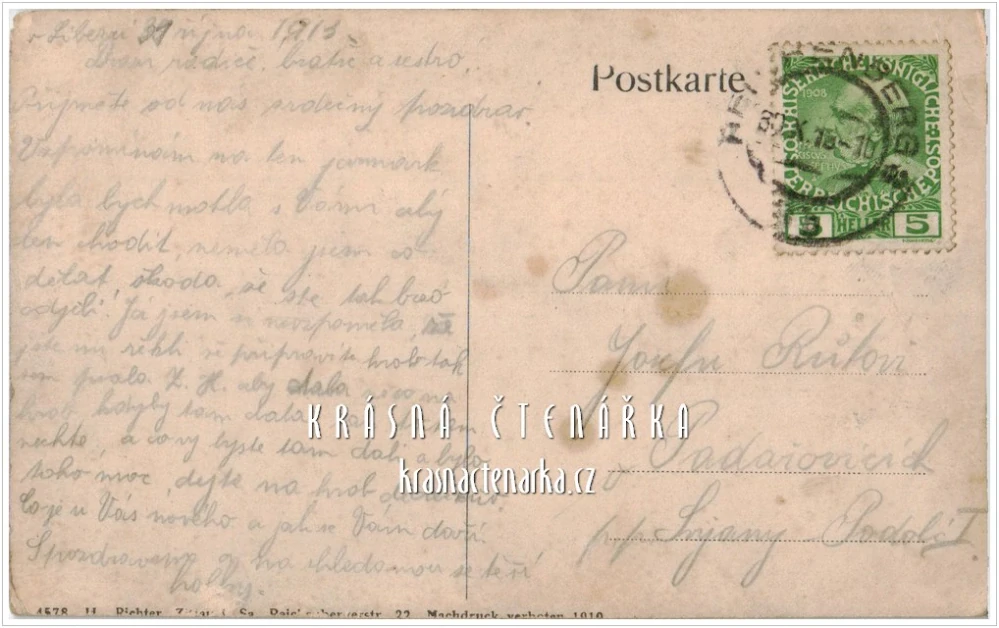 v Liberci 31 října 1913.
Drazí rodiče, bratře a sestro,
Přijměte od nás srdečný pozdrav
Vzpomínám na ten jarmark
byla bych mohla s Vámi aby
ten chodit, neměla jsem co
dělat, škoda, že ste tak brzo
odjeli. Já jsem si nevzpoměla, že
jste mi řekli že připravíte hrob tak
sem psala Z. H. aby dala něco na
hrob, kdyby tam dala
nechte, a co vy byste tam dali a bylo
toho moc, dejte na hrob
Co je u Vás nového a jak se Vám daří.
S pozdravem a na shledanou se těší
Postkarte
REICHENBERG
30.X.13-10
1908
KAISERLICHE KÖNIGLICHE POST
ÖSTERREICHISCHE
5 HELLER 5
Panu
Josefu Růtovi
Padařovicích
p.p. Svijany Podolí I
KRÁSNÁ ČTENÁŘKA
krasnactenarka.cz
4578 H. Richter, Zittau i. Sa. Reichenbergerstr. 22. Nachdruck verboten 1910